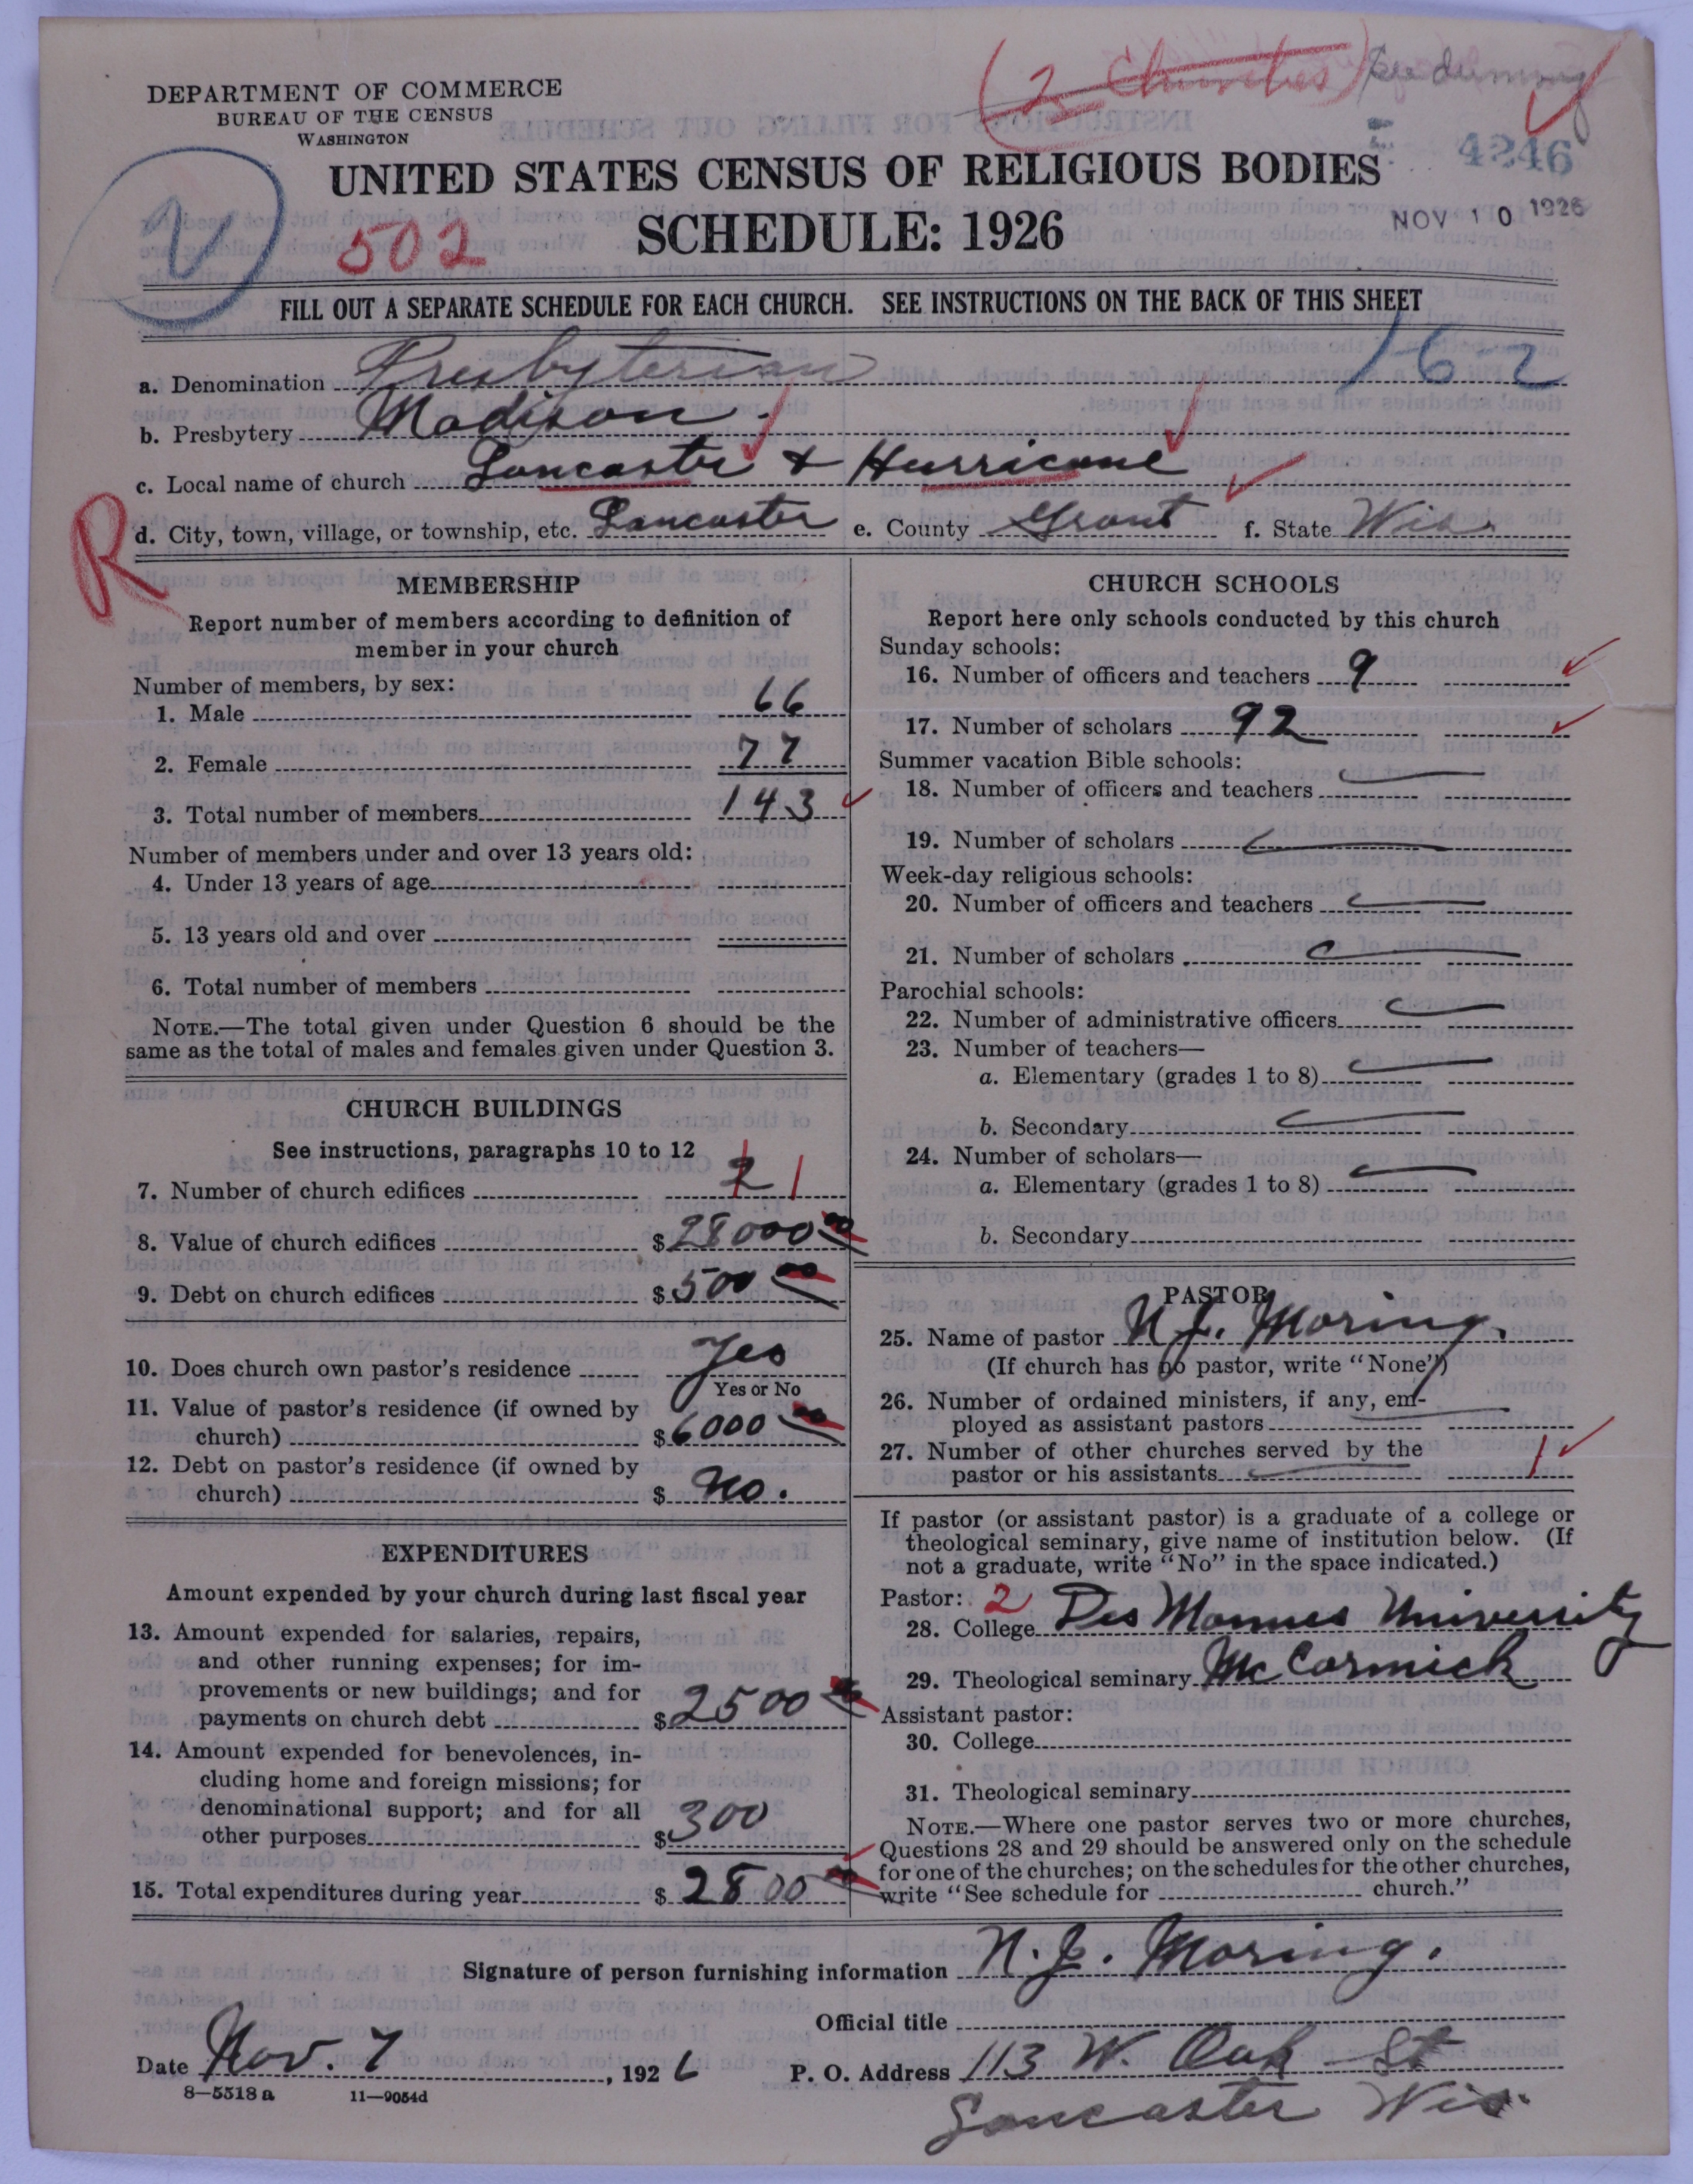 (2 Churches) See
DEPARTMENT OF COMMERCE
BUREAU OF THE CENSUS
WASHINGTON
4246
UNITED STATES CENSUS OF RELIGIOUS BODIES
NOV 10 1926
502
SCHEDULE: 1926
FILL OUT A SEPARATE SCHEDULE FOR EACH CHURCH. SEE INSTRUCTIONS ON THE BACK OF THIS SHEET
16-2
a. Denomination Presbyterian
b. Presbytery Madison.
c. Local name of church Lancaster & Hurricane
R
d. City, town, village, or township, etc. Lancaster e. County Grant f. State Wis.
MEMBERSHIP
Report number of members according to definition of
member in your church
Number of members, by sex:
1. Male 66
2. Female 77
3. Total number of members 143
Number of members under and over 13 years old:
4. Under 13 years of age
5. 13 years old and over
6. Total number of members
NOTE.—The total given under Question 6 should be the
same as the total of males and females given under Question 3.
CHURCH BUILDINGS
See instructions, paragraphs 10 to 12
7. Number of church edifices 2 1
8. Value of church edifices $28000 00
9. Debt on church edifices $500 00
10. Does church own pastor's residence Yes
Yes or No
11. Value of pastor's residence (if owned by
church) $6000 00
12. Debt on pastor's residence (if owned by
church) $ No.
EXPENDITURES
Amount expended by your church during last fiscal year
13. Amount expended for salaries, repairs,
and other running expenses; for im-
provements or new buildings; and for
payments on church debt $2500 00
14. Amount expended for benevolences, in-
cluding home and foreign missions; for
denominational support; and for all
other purposes $300
15. Total expenditures during year $2800 00
CHURCH SCHOOLS
Report here only schools conducted by this church
Sunday schools:
16. Number of officers and teachers 9
17. Number of scholars 92
Summer vacation Bible schools:
18. Number of officers and teachers
19. Number of scholars
Week-day religious schools:
20. Number of officers and teachers
21. Number of scholars
Parochial schools:
22. Number of administrative officers
23. Number of teachers—
a. Elementary (grades 1 to 8)
b. Secondary
24. Number of scholars—
a. Elementary (grades 1 to 8)
b. Secondary
PASTOR
25. Name of pastor N. J. Moring.
(If church has no pastor, write "None")
26. Number of ordained ministers, if any, em-
ployed as assistant pastors
27. Number of other churches served by the
pastor or his assistants 1
If pastor (or assistant pastor) is a graduate of a college or
theological seminary, give name of institution below. (If
not a graduate, write "No" in the space indicated.)
Pastor: 2
28. College Des Moines University
29. Theological seminary McCormick
Assistant pastor:
30. College
31. Theological seminary
NOTE.—Where one pastor serves two or more churches,
Questions 28 and 29 should be answered only on the schedule
for one of the churches; on the schedules for the other churches,
write "See schedule for church."
Signature of person furnishing information N. J. Moring.
Official title
Date Nov. 7, 1926 P. O. Address 113 W. Oak St
8—5518 a 11—9054d
Lancaster Wis.